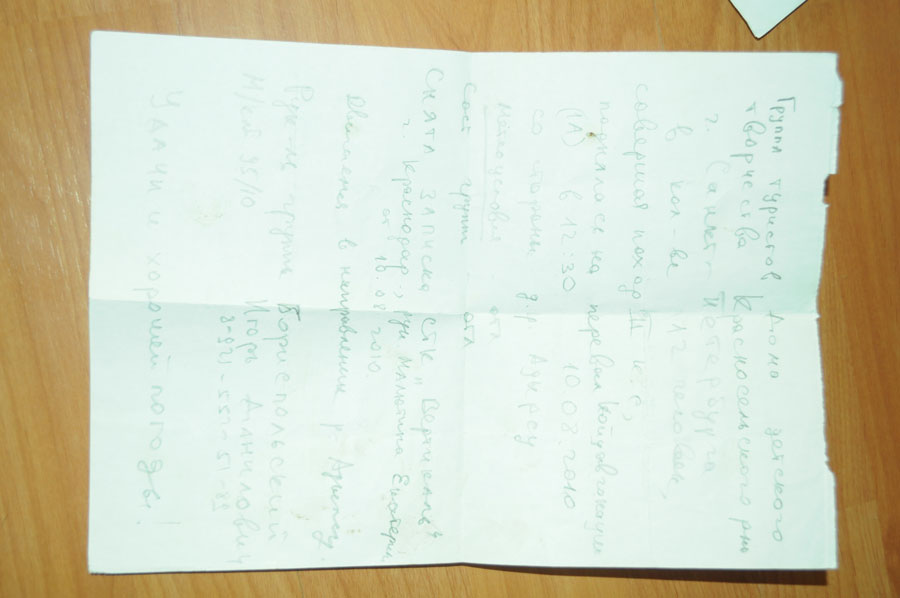 Группа туристов дома детского
творчества Красносельского р-на
г. Санкт-Петербурга
в кол-ве 12 человек,
совершая поход III к.с.,
поднялась на перевал
(1А) в 12:30 10.08.2010
со стороны д.р. Адырсу
Метеоусловия отл
Сост. группы отл
Снята записка СТК "Вертикаль"
г. Краснодар, рук Малютина Екатерина
от 10.08.2010.
Движемся в направлении р.
Рук-ль группы Бориспольский
Игорь Данилович
М/к 95/10 8-921-551-51-89
Удачи и хорошей погоды!